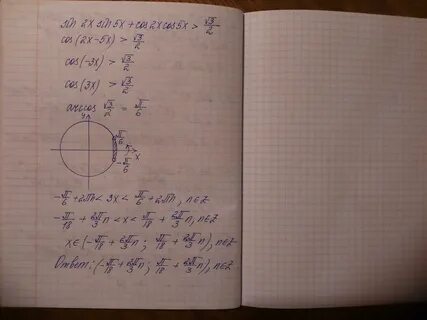 sin 2x sin 5x + cos 2x cos 5x > √3/2
cos (2x-5x) > √3/2
cos (-3x) > √3/2
cos (3x) > √3/2
arccos √3/2 = π/6
y
π/6
x
-π/6
-π/6 + 2πn < 3x < π/6 + 2πn, n∈Z
-π/18 + 2π/3 n < x < π/18 + 2π/3 n, n∈Z
x∈(-π/18 + 2π/3 n; π/18 + 2π/3 n), n∈Z
Ответ: (-π/18 + 2π/3 n; π/18 + 2π/3 n), n∈Z